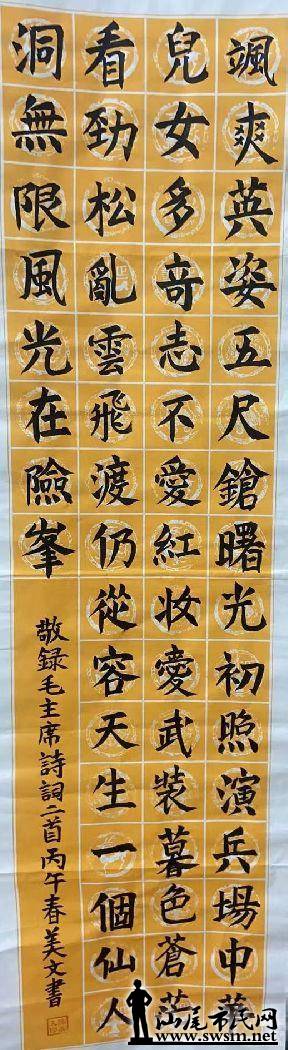 颯爽英姿五尺鎗曙光初照演兵場中華
兒女多竒志不愛紅妆愛武裝暮色蒼茫
看勁松亂雲飛渡仍從容天生一個仙人
洞無限風光在險峯
敬録毛主席詩詞二首丙午春美文書
汕尾市民网
www.swsm.net